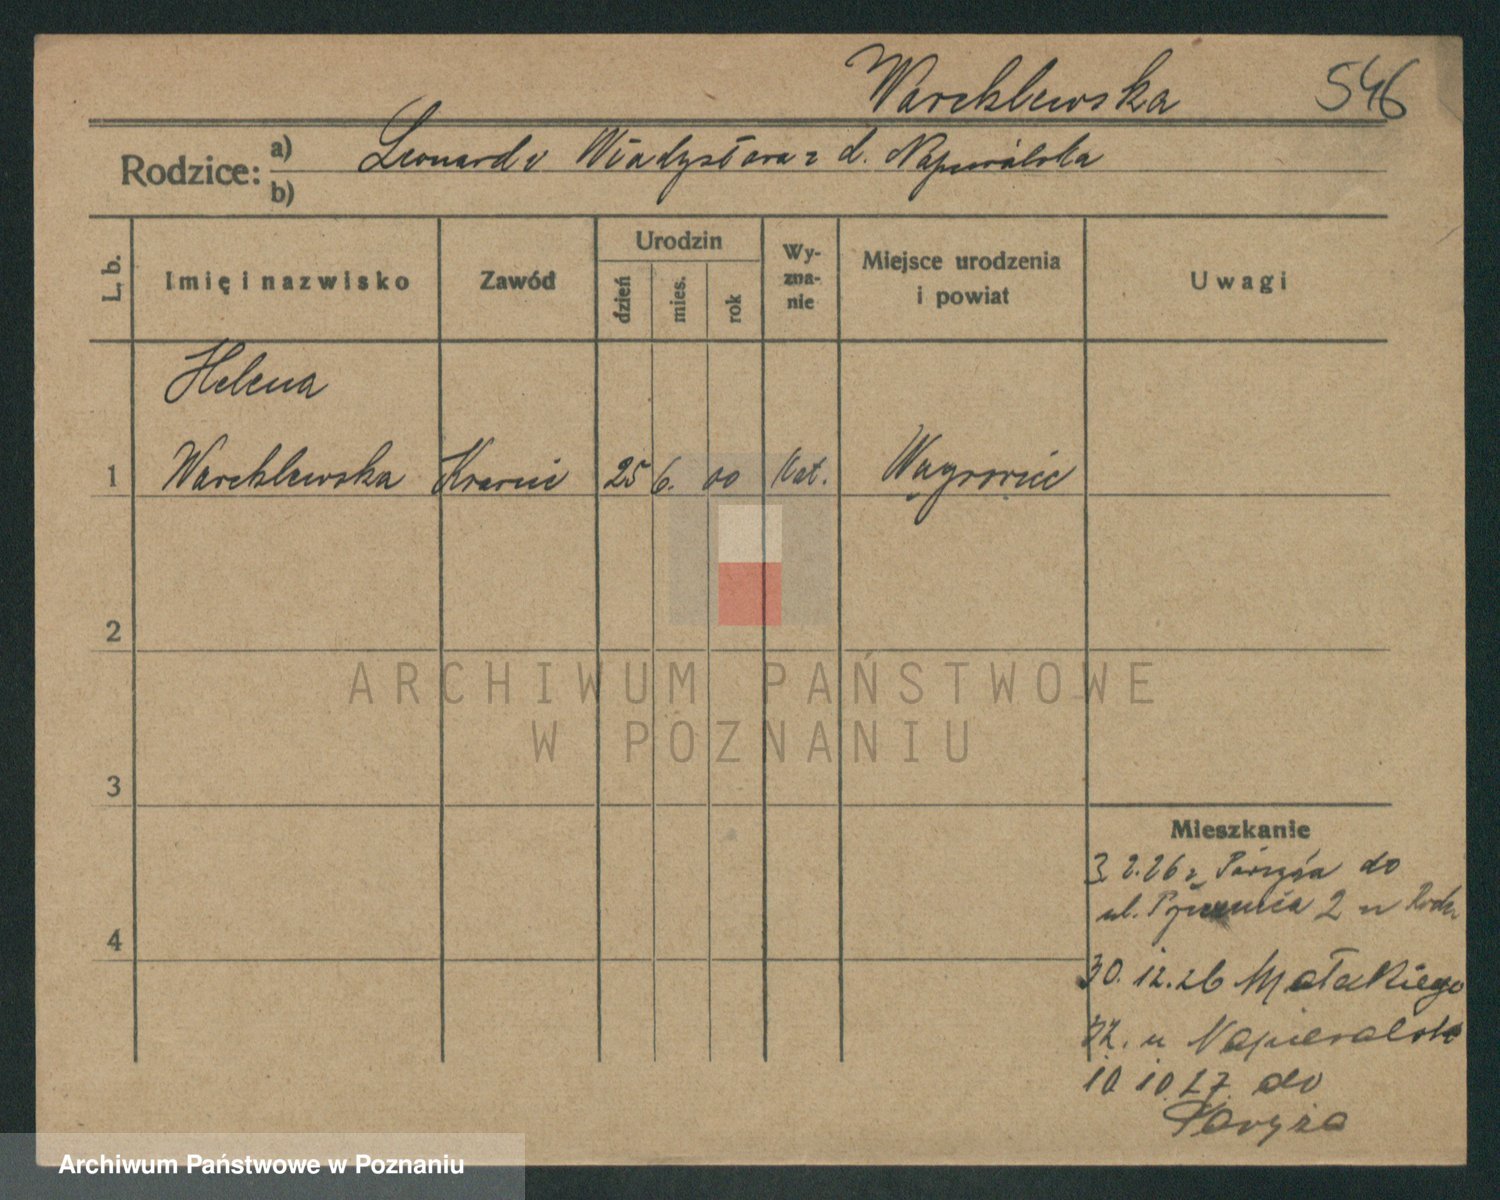 Warcklewska 546
Rodzice: a) Leonard i Władysława z d. Napieralska
b)
L. b. Imię i nazwisko Zawód Urodzin dzień mies. rok Wy-zna-nie Miejsce urodzenia i powiat Uwagi
Helena
1 Warcklewska 25 6. 00 Kat. Wągrowiec
2
3
4
Mieszkanie
3. 2. 26 z Paryża do
ul. 2 u
30. 12. 26 Małeckiego
32. u Napieralska
10 10 27 do
Paryża
ARCHIWUM PAŃSTWOWE
W POZNANIU
Archiwum Państwowe w Poznaniu